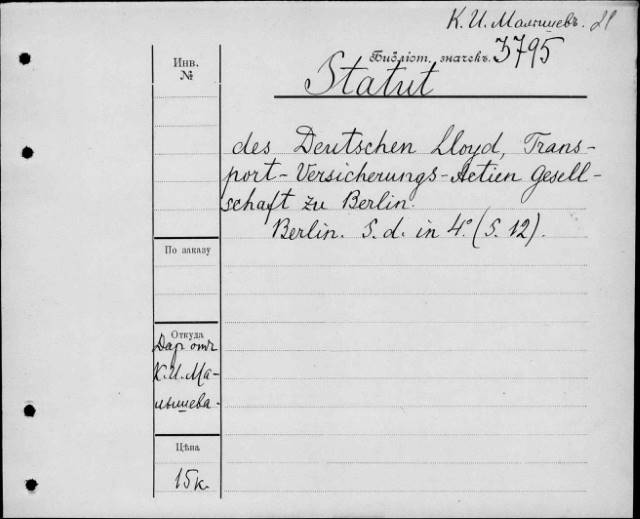 К. И. Малышевъ. 21
Инв.
№
Библіот. значекъ. 3795
Statut
des Deutschen Lloyd, Trans-
port-Versicherungs-Actien Gesell-
schaft zu Berlin.
Berlin. S. d. in 4.° (S. 12).
По заказу
Откуда
Даръ отъ
К. И. Ма-
лышева.
Цѣна
15 к.